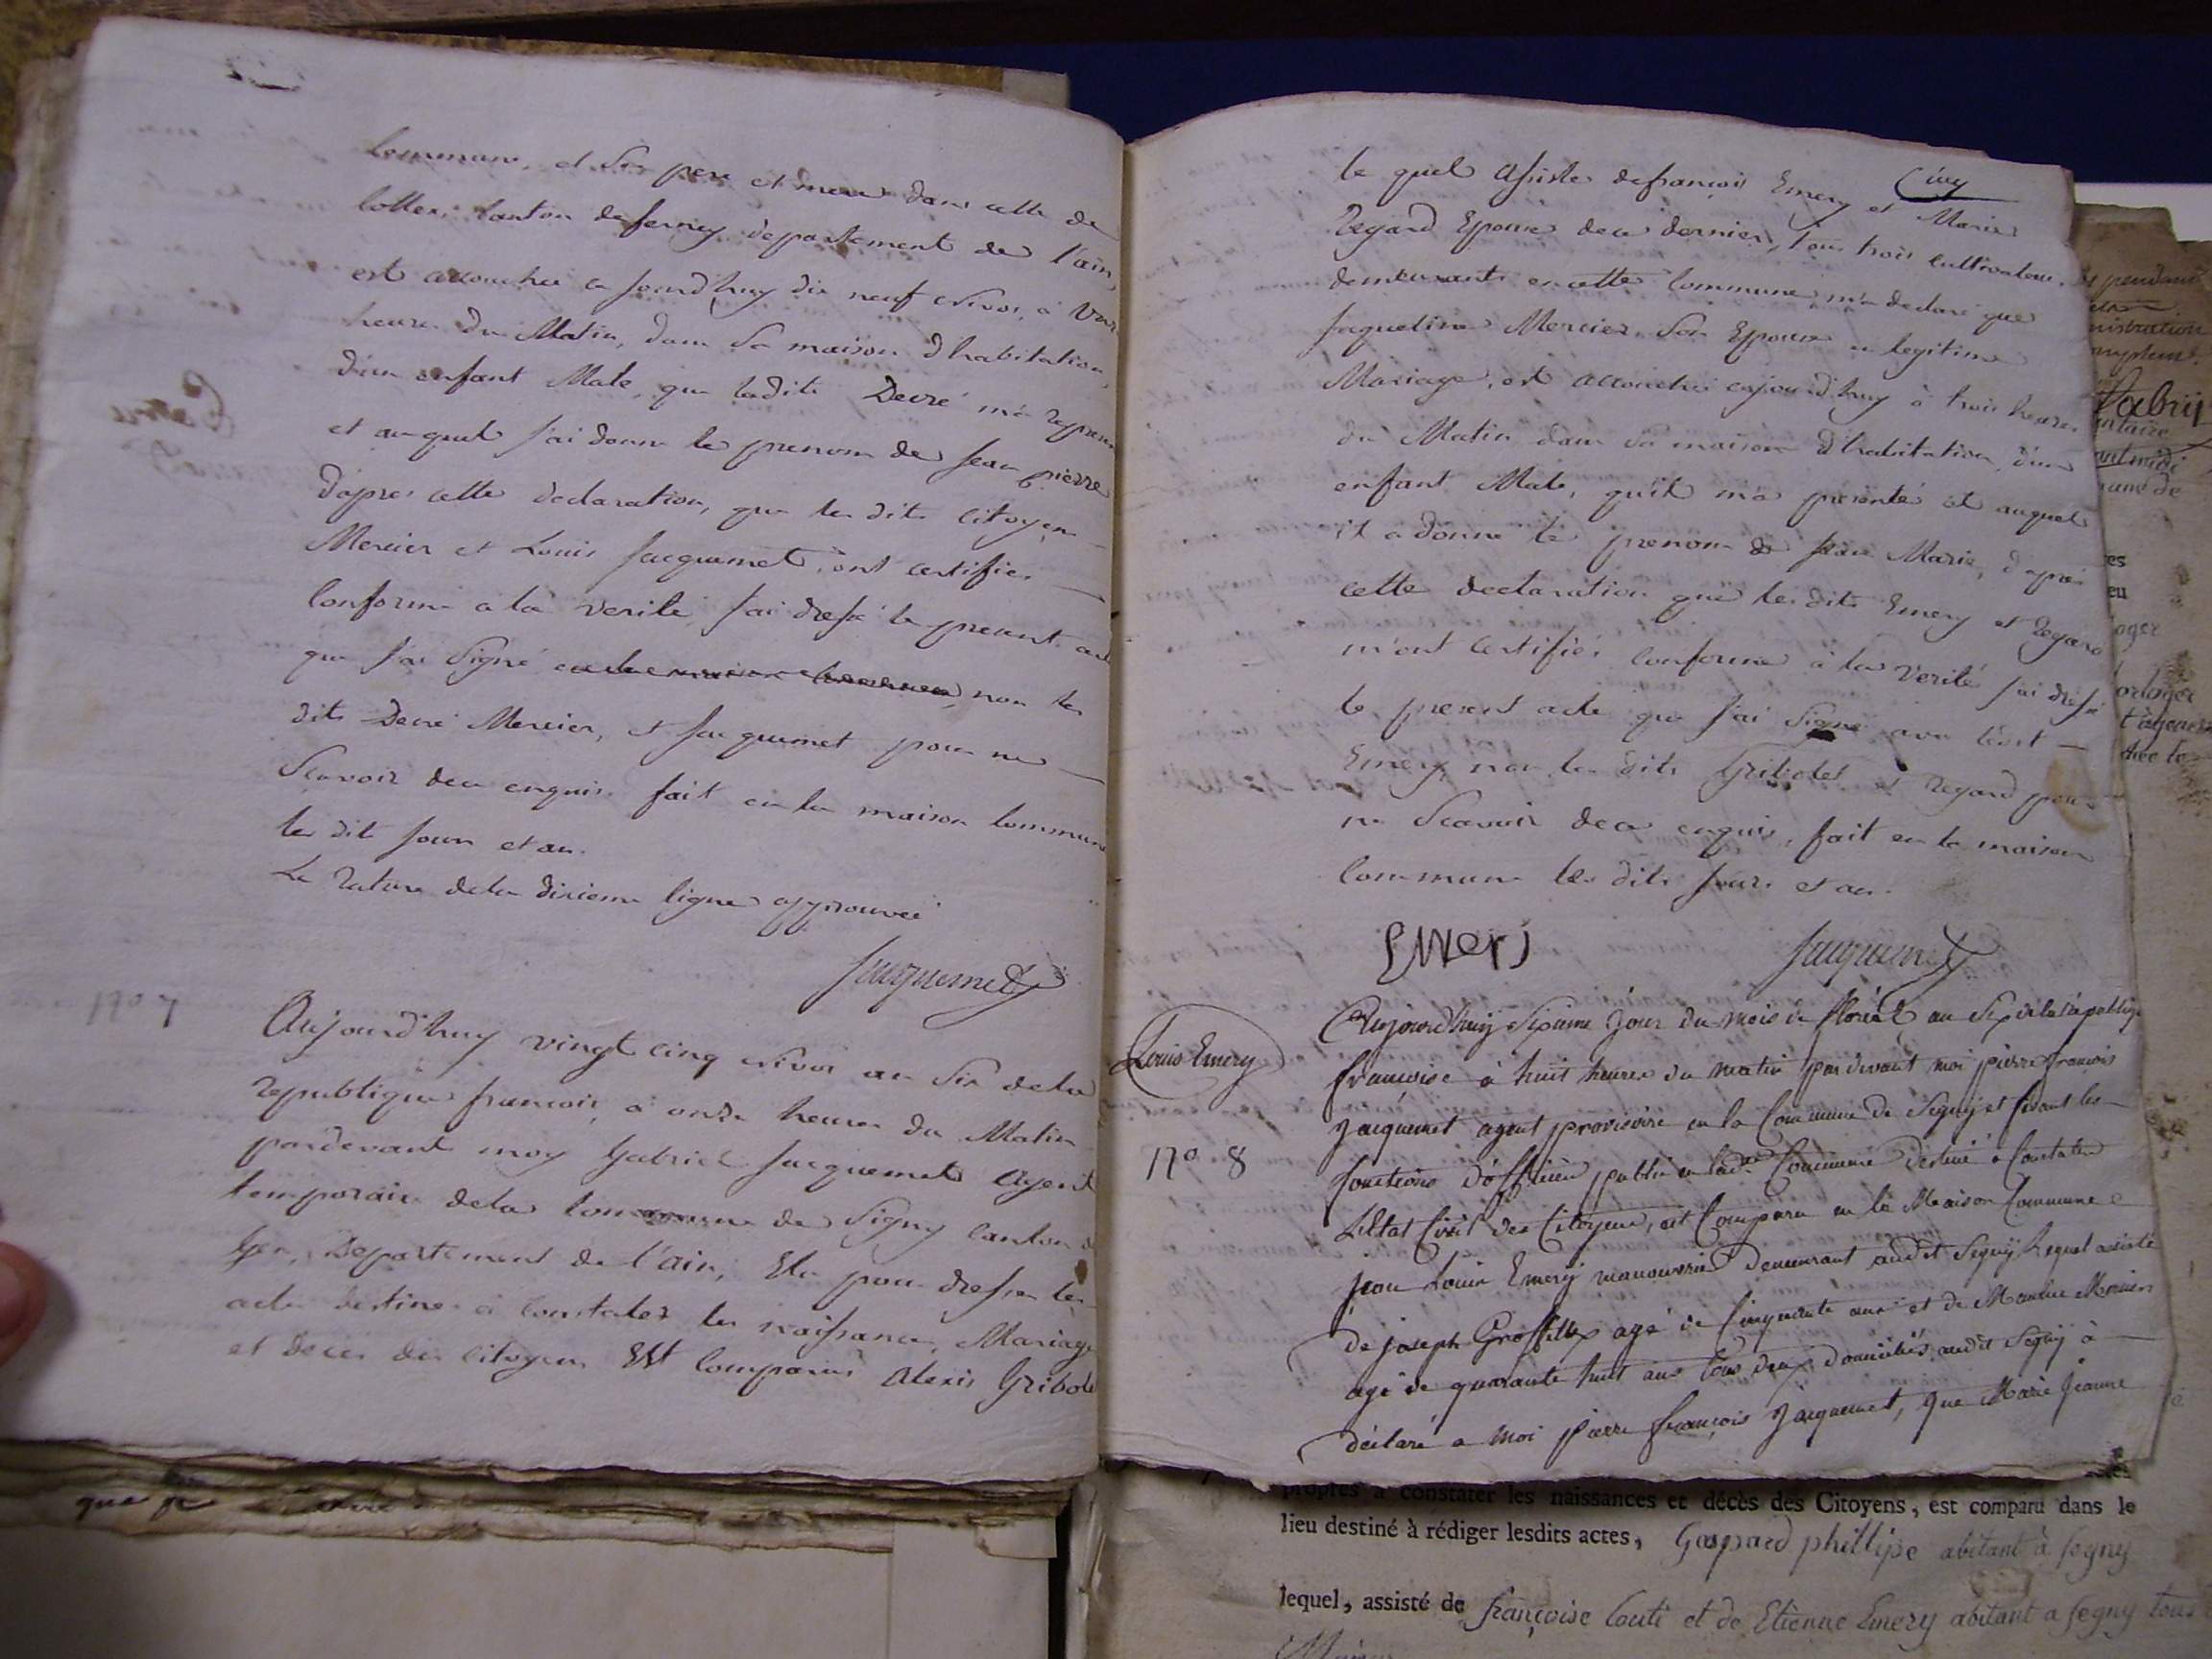 Commune, et Ses pere et mere dans celle de
Collex canton de ferney departement de l'ain,
est accouchee ce jourd'huy dix neuf nivos, a
heures du Matin, dans Sa maison d'habitation,
d'un enfant Male, que ladite Decré m'a
et auquel j'ai donné le prenom de Jean pierre
d'apres cette declaration, que les dits citoyens
Mercier et Louis Jacquemet, ont certifies
Conforme a la verité, j'ai dressé le present acte
que j'ai Signé non les
dits Decré Mercier, et Jacquemet pour ne
Scavoir de ce enquis. fait en la maison Commune
les dit Jour et an.
La rature de la dixieme ligne approuvee
Jacquemet
N° 7
Aujourd'huy vingt cinq nivos an Six de la
republique francois, a onze heures du Matin
pardevant moy Gabriel Jacquemet Agent
temporaire de la commune de Segny canton de
Gex, Departement de l'ain, Elu pour dresser les
actes destines a constater les naissances, Mariages
et deces des citoyens Est Comparus Alexis Gribolet
le quel assisté de francois Emery et Marie
Regard Epouse de ce dernier, tous trois cultivateurs
demeurants en cette Commune, m'a declaré que
Jaqueline Mercier Son Epouse en legitime
Mariage, est accouchée cejourd'huy à trois heures
du Matin dans Sa maison d'habitation, d'un
enfant Male, qu'il m'a presenté et auquel
il a donné le prenom de Jean Marie, d'après
cette declaration que les dits Emery et Regard
m'ont certifiés conforme à la verité j'ai dressé
le present acte que j'ai Signé avec
Emery non les dits Gribolet et Regard pour
ne Scavoir de ce enquis, fait en la maison
Commune les dits Jour et an.
Emerj
Jacquemet
Louis Emery
N° 8
Aujourdhuij Sixieme Jour du mois de floréal an Six de la république
françoise à huit heures du matin pardevant moi pierre françois
Jacquemet agent provisoire en la Commune de Segnij et faisant les
fonctions d'officier public en ladte Commune destiné à Constater
L'Etat Civil des Citoyens, est Comparu en la Maison Commune
jean Louis Emerij manouvrier demeurant audit Segnij lequel assisté
de joseph Grossillex agé de Cinquante ans et de Mercier
agé de quarante huit ans tous deux domiciliés audit Segnij à
déclaré a moi pierre françois Jacquemet, que Marie Jeanne
propres à constater les naissances et décès des Citoyens, est comparu dans le
lieu destiné à rédiger lesdits actes, Gaspard phillipe abitant à segny
lequel, assisté de françoise Couti et de Etienne Emery abitant a segny tous